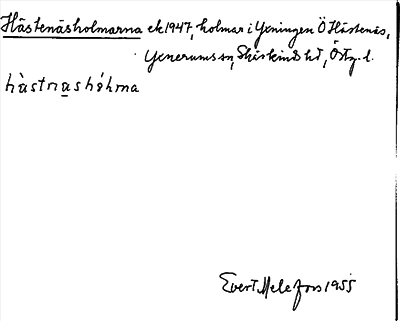 Hästenäsholmarna ek 1947, holmar i Yxningen Ö Hästenäs,
Yxnerums sn, Skärkinds hd, Östg. l.
hästnashólma
Evert Melefors 1955